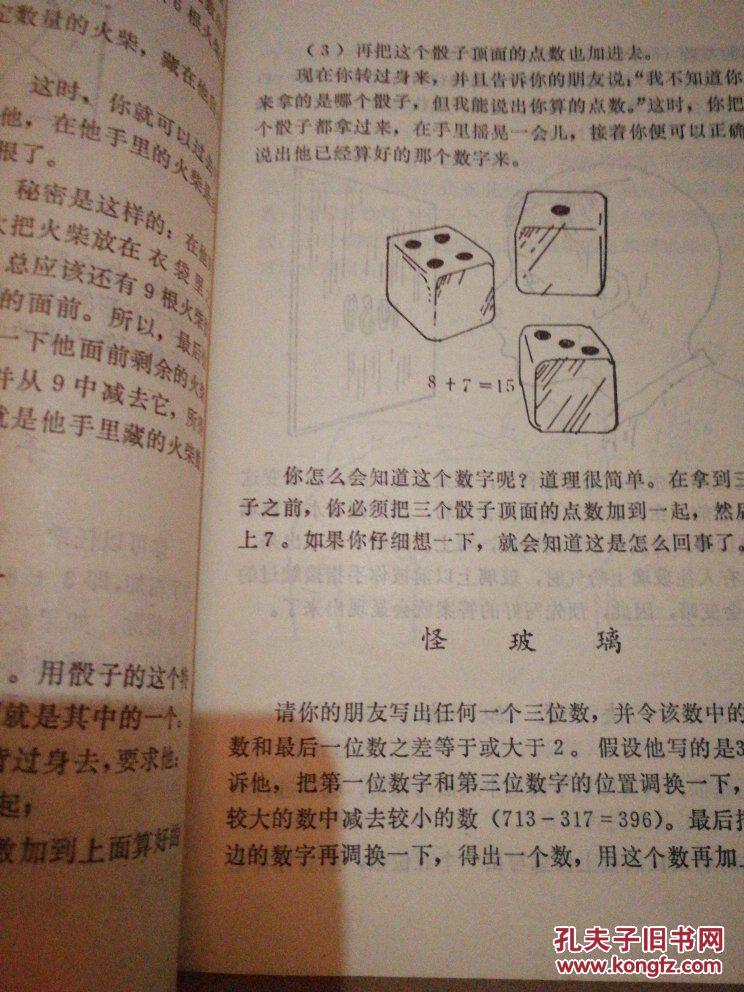 6根火
定数量的火柴，藏在他
这时，你就可以过
他，在他手里的火柴是
根了。
秘密是这样的：在他
把火柴放在衣袋里
总应该还有9根火柴
的面前。所以，最后
一下他面前剩余的火
并从9中减去它，所
就是他手里藏的火柴
。用骰子的这个特
就是其中的一个。
背过身去，要求他：
起；
数加到上面算好的
（3）再把这个骰子顶面的点数也加进去。
现在你转过身来，并且告诉你的朋友说：“我不知道你
来拿的是哪个骰子，但我能说出你算的点数。”这时，你把
个骰子都拿过来，在手里摇晃一会儿，接着你便可以正确
说出他已经算好的那个数字来。
8+7=15
你怎么会知道这个数字呢？道理很简单。在拿到三
子之前，你必须把三个骰子顶面的点数加到一起，然后
上7。如果你仔细想一下，就会知道这是怎么回事了。
怪玻璃
请你的朋友写出任何一个三位数，并令该数中的
数和最后一位数之差等于或大于2。假设他写的是3
诉他，把第一位数字和第三位数字的位置调换一下，
较大的数中减去较小的数（713－317＝396）。最后把
边的数字再调换一下，得出一个数，用这个数再加上
孔夫子旧书网
www.kongfz.com